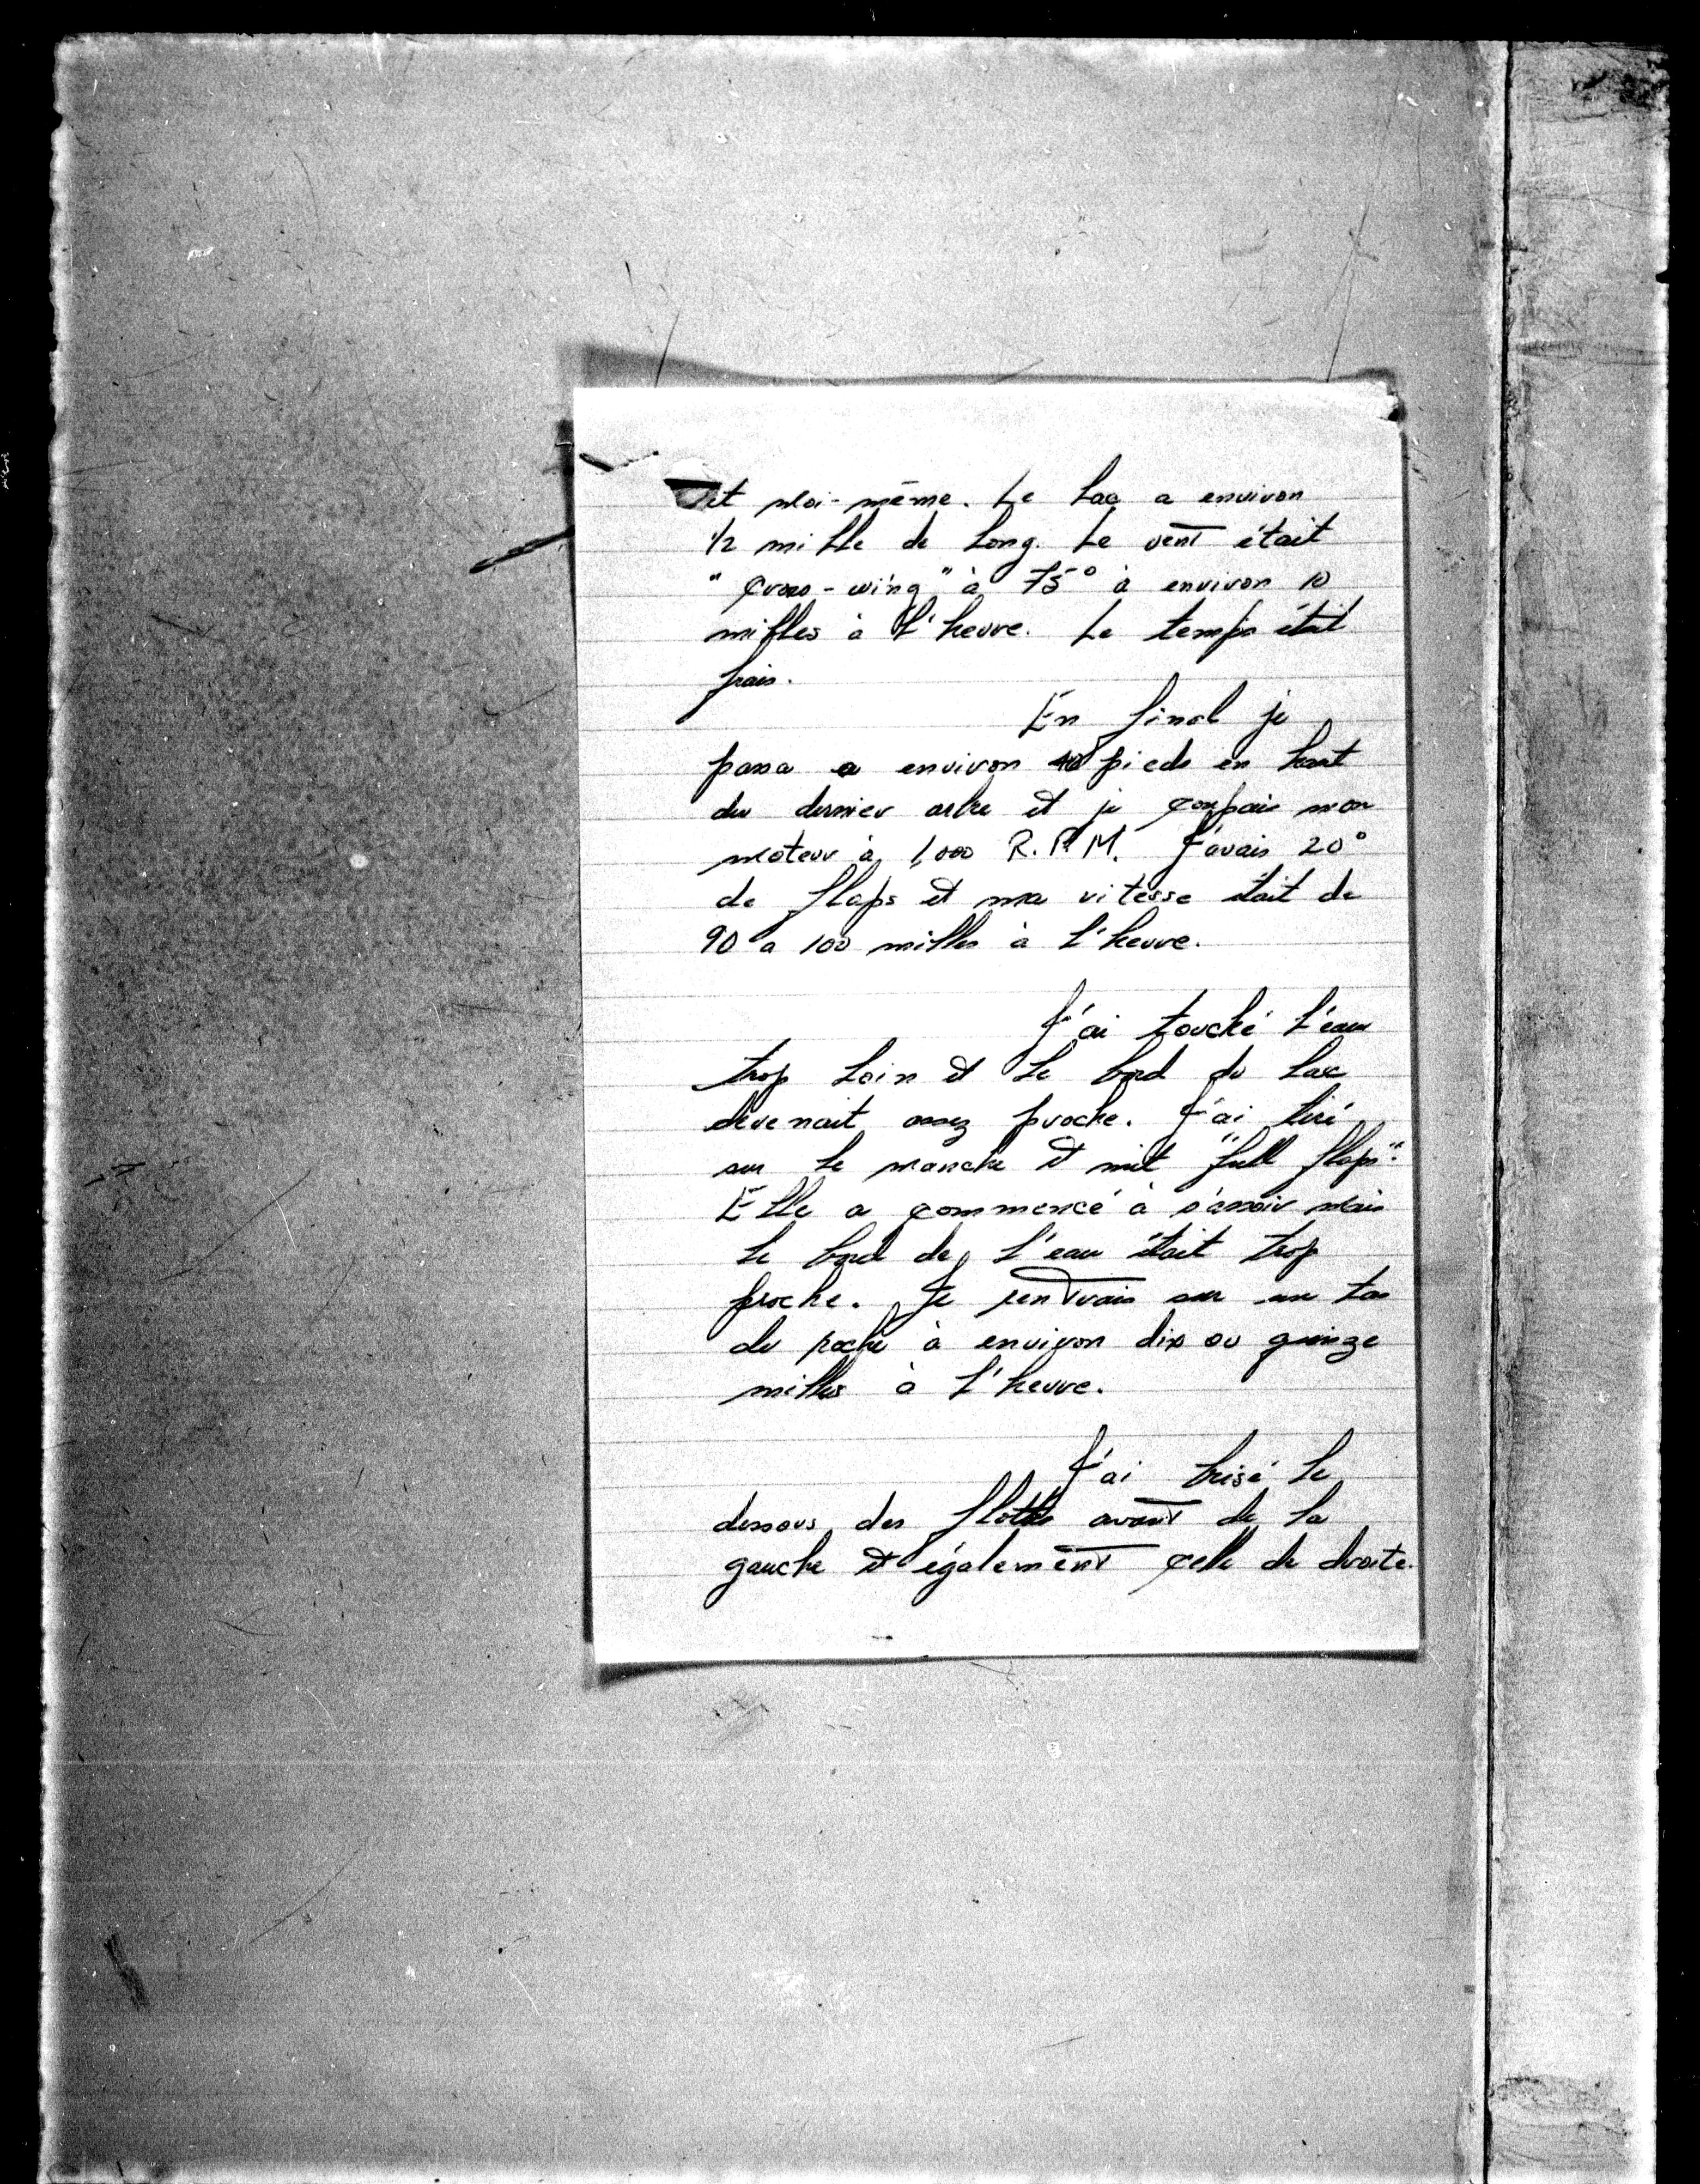 et moi-même. Le Lac a environ
1/2 mille de Long. Le vent était
"cross-wing" à 75° à environ 10
milles à l'heure. Le temps était
frais.
En final je
passa a environ 40 pieds en haut
du dernier arbre et je coupais mon
moteur à 1,000 R.P.M. J'avais 20°
de flaps et ma vitesse était de
90 a 100 milles à l'heure.
J'ai touché l'eau
trop Loin et le bord du Lac
devenait assez proche. J'ai tiré
sur le manche et mit "full flaps".
Elle a commencé à s'assoir mais
le bord de l'eau était trop
proche. Je rentrais sur un tas
de roche à environ dix ou quinze
milles à l'heure.
J'ai brisé le
dessous des flottes avant de la
gauche et également celle de droite.